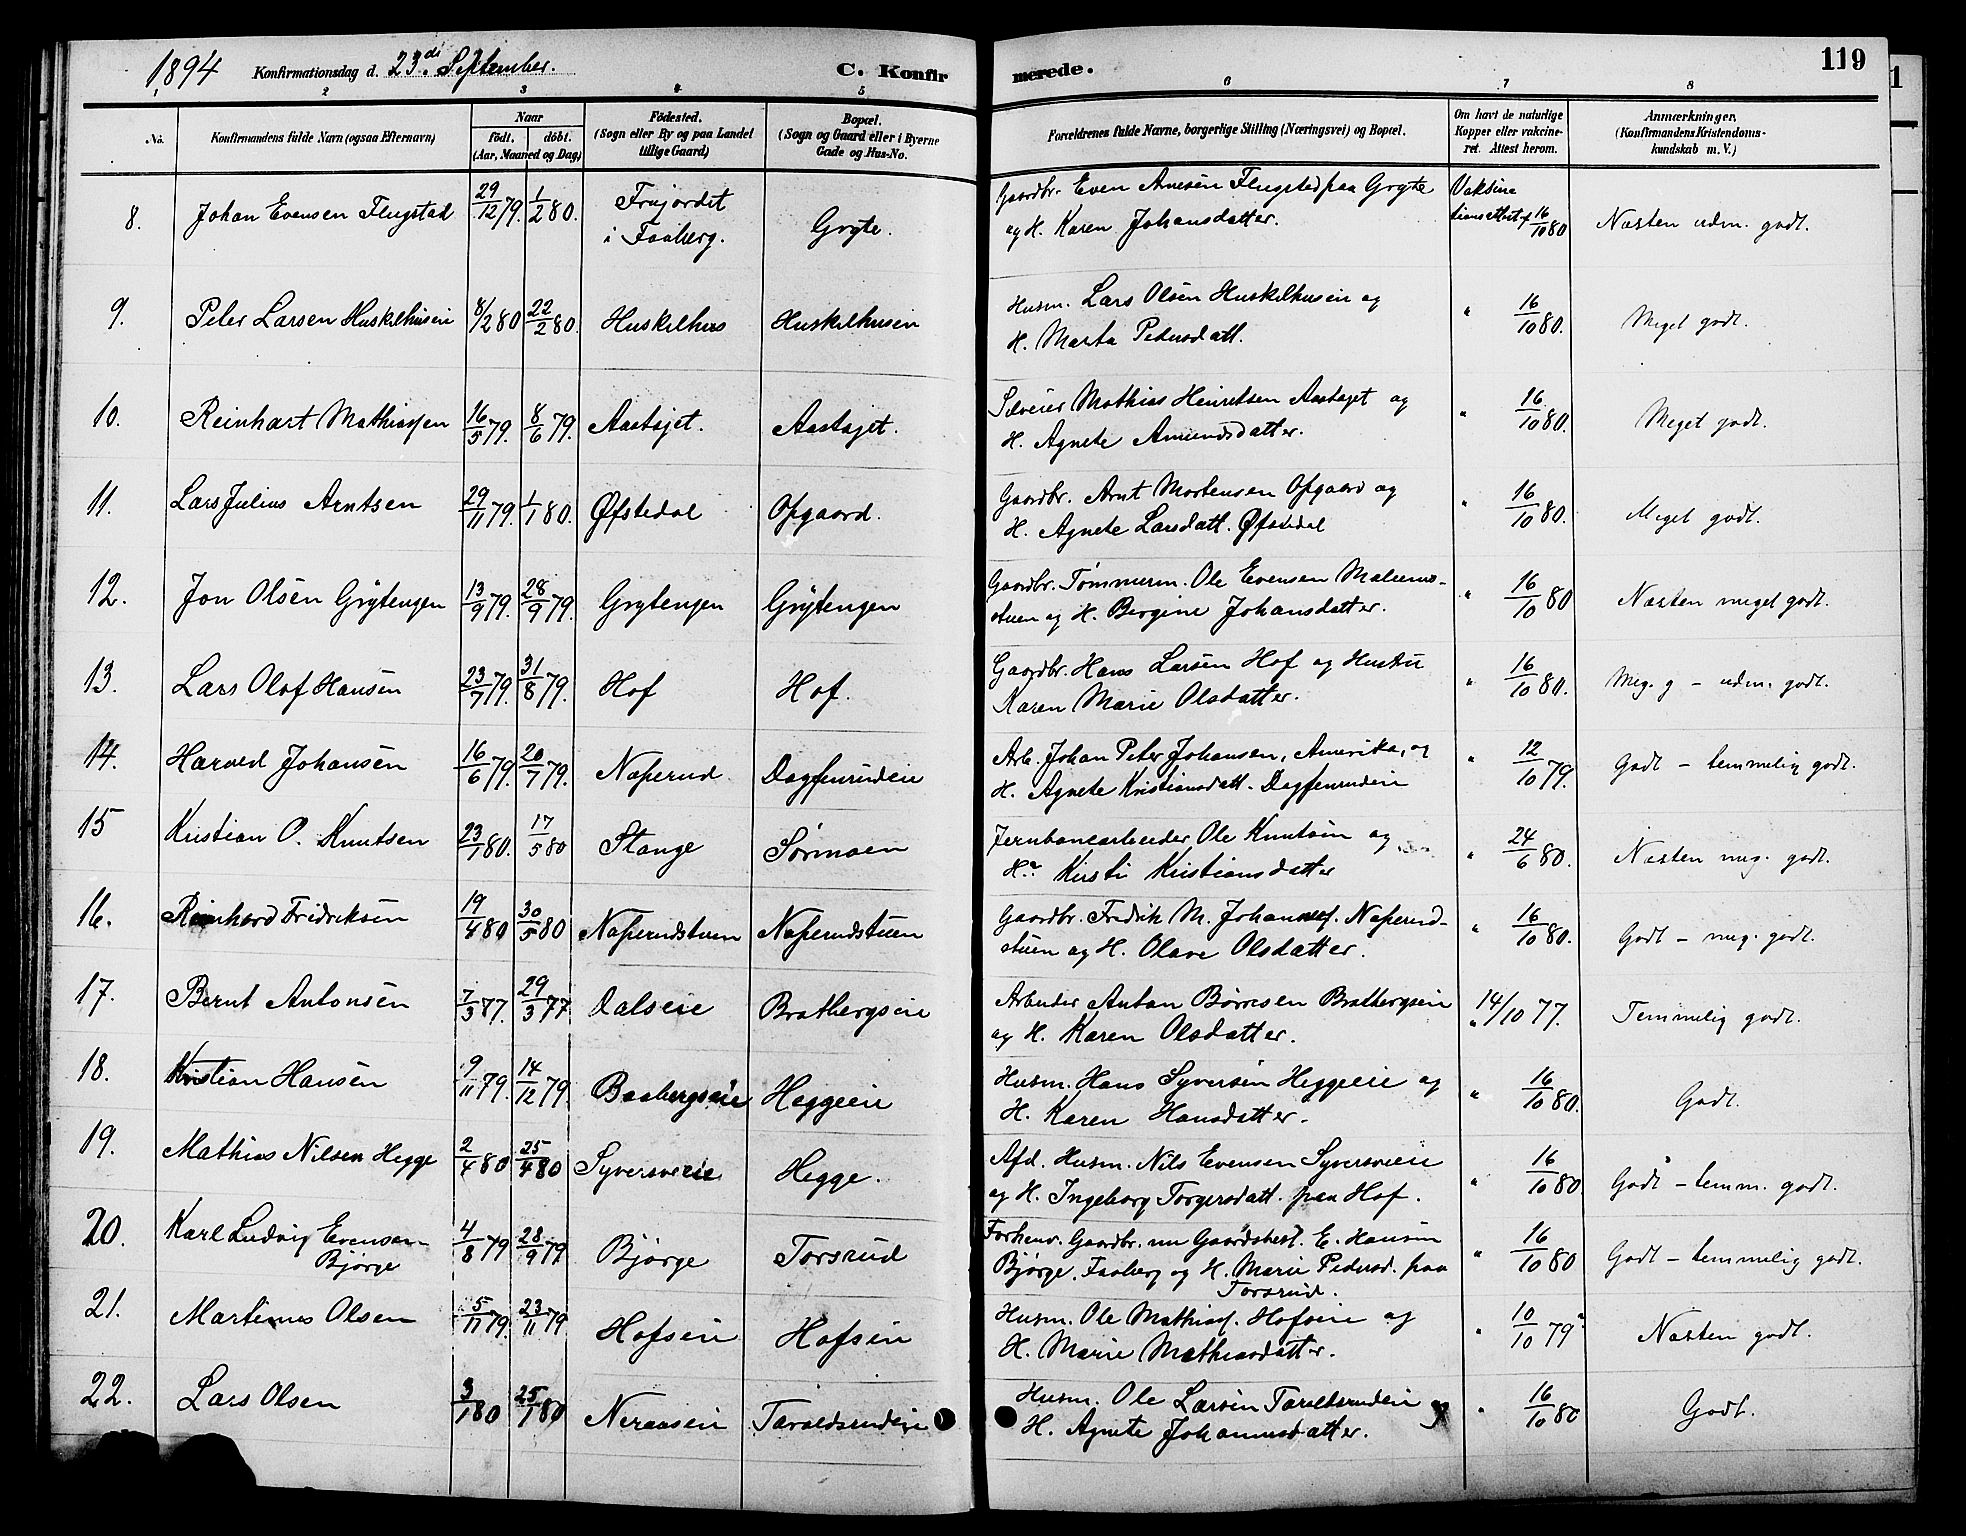 1894 Konfirmationsdag d. 23de September. C. Konfirmerede. 119
2 3 4 5 6 7 8
No. Konfirmandens fulde Navn (ogsaa Efternavn) Naar født. døbt. (Aar, Maaned og Dag.) Fødested. (Sogn eller By og paa Landet tillige Gaard.) Bopæl. (Sogn og Gaard eller i Byerne Gade og Hus-No. Forældrenes fulde Navne, borgerlige Stilling (Næringsvei) og Bopæl. Om havt de naturlige Kopper eller vakcineret. Attest herom. Anmærkninger. (Konfirmandens Kristendomskundskab m. V.)
8. Johan Evensen Flugstad 29/12 79. 1/2 80. Frujordet i Faaberg. Gryte. Gaardbr. Even Arnesen Flugstad paa Gryte og H. Karen Johansdatter. Vaksinationsattest af 16/10 80 Næsten udm. godt.
9. Peter Larsen Huskelhusen 8/2 80 22/2 80. Huskelhus Huskelhusen Husm. Lars Olsen Huskelhusen og H. Marta Pedersdatt. " 16/10 80. Meget godt.
10. Reinhart Mathiassen 16/5 79. 8/6 79. Aastajet. Aastajet. Selveier Mathias Henretsen Aastajet og H. Agnete Amundsdatter. " 16/10 80. Meget godt.
11. Lars Julius Arntsen 29/11 79. 1/1 80. Øfstedal Opgaard. Gaardbr. Arnt Mortensen Opgaard og H. Agnete Larsdatt. Øfstedal " 16/10 80. Meget godt.
12. Jon Olsen Grytengen 13/9 79. 28/9 79. Grytengen Grytengen Gaardbr. Tømmerm. Ole Evensen Malermostuen og H. Bergine Johansdatter. " 16/10 80 Næsten meget godt.
13. Lars Olof Hansen 23/7 79. 31/8 79. Hof Hof. Gaardbr. Hans Larsen Hof og Hustu Karen Marie Olsdatter. " 16/10 80. Meg. g – udm. godt.
14. Harved Johansen 16/6 79. 20/7 79. Naperud. Dagfenrudeie Arb. Johan Peter Johansen, Amerika, og H. Agnete Kristiansdatt. Dagfenrudein " 12/10 79. Godt – temmelig godt.
15 Kristian O. Knutsen 23/1 80. 17/5 80 Stange Sørmoen Jernbanearbeider Ole Knutsen og Ha. Kirsti Kristiansdatter " 24/6 80. Næsten meg. godt.
16. Reinhard Fridriksen 19/4 80 30/5 80 Naperudstuen Naperudstuen Gaardbr. Fredrik M. Johannesf. Naperudstuen og H. Olave Olsdatter. " 16/10 80. Godt – meg. godt.
17. Bernt Antonsen 7/3 87. 29/3 77 Dalseie Bratbergseie Arbeider Anton Børresen Bratbergseie og H. Karen Olsdatter. " 14/10 77. Temmelig godt.
18. Kristian Hansen 9/11 79. 14/12 79. Baabergseie Heggeeie Husm. Hans Syversen Heggeeie og H. Karen Hansdatter. " 16/10 80. Godt.
19. Mathias Nilsen Hegge 2/4 80 25/4 80 Syversveeie Hegge. Afd. Husm. Nils Evensen Syversveeie og H. Ingeborg Torgersdatt. paa Hof. " 16/10 80 Godt – temm. godt.
20. Karl Ludvig Evensen Bjørge 4/8 79 28/9 79 Bjørge Torsrud Forhenv. Gaardbr. nu Gaardsbest. E. Hansen Bjørge, Faaberg og H. Marie Pedersd. paa Torsrud. " 16/10 80 Godt – temmelig godt.
21. Martinus Olsen 5/11 79. 23/11 79 Hofseie Hofseie Husm. Ole Mathiasf. Hofseie og H. Marie Mathiasdatter. " 10/10 79 Næsten godt.
22. Lars Olsen 3/1 80 25/1 80 Neraaseie Taraldsrudeie Husm. Ole Larsen Taraltsrudeie og H. Agnete Johannesdatter. " 16/10 80 Godt.